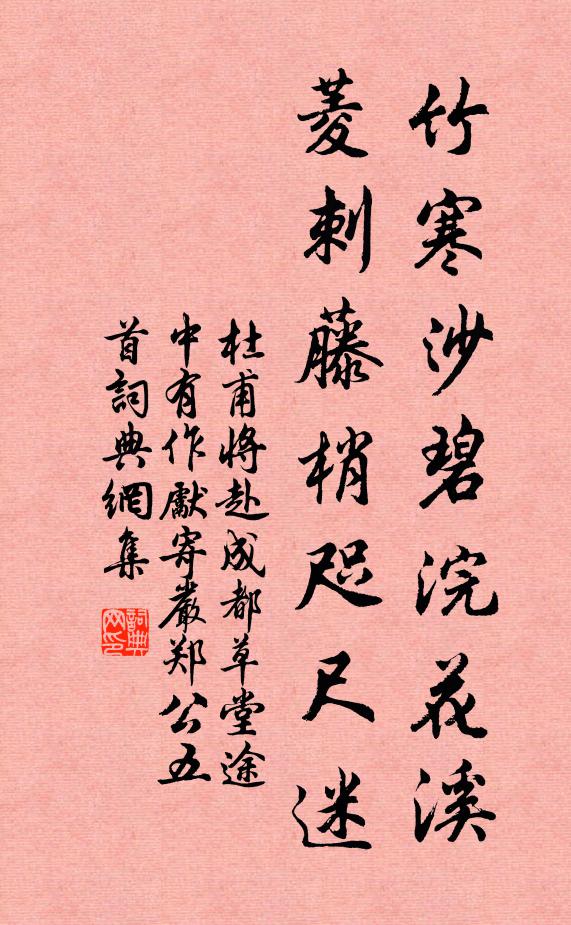 竹寒沙碧浣花溪
菱刺藤梢咫尺迷
杜甫將赴成都草堂途
中有作獻寄嚴郑公五
首詞典網集
詞典
网印